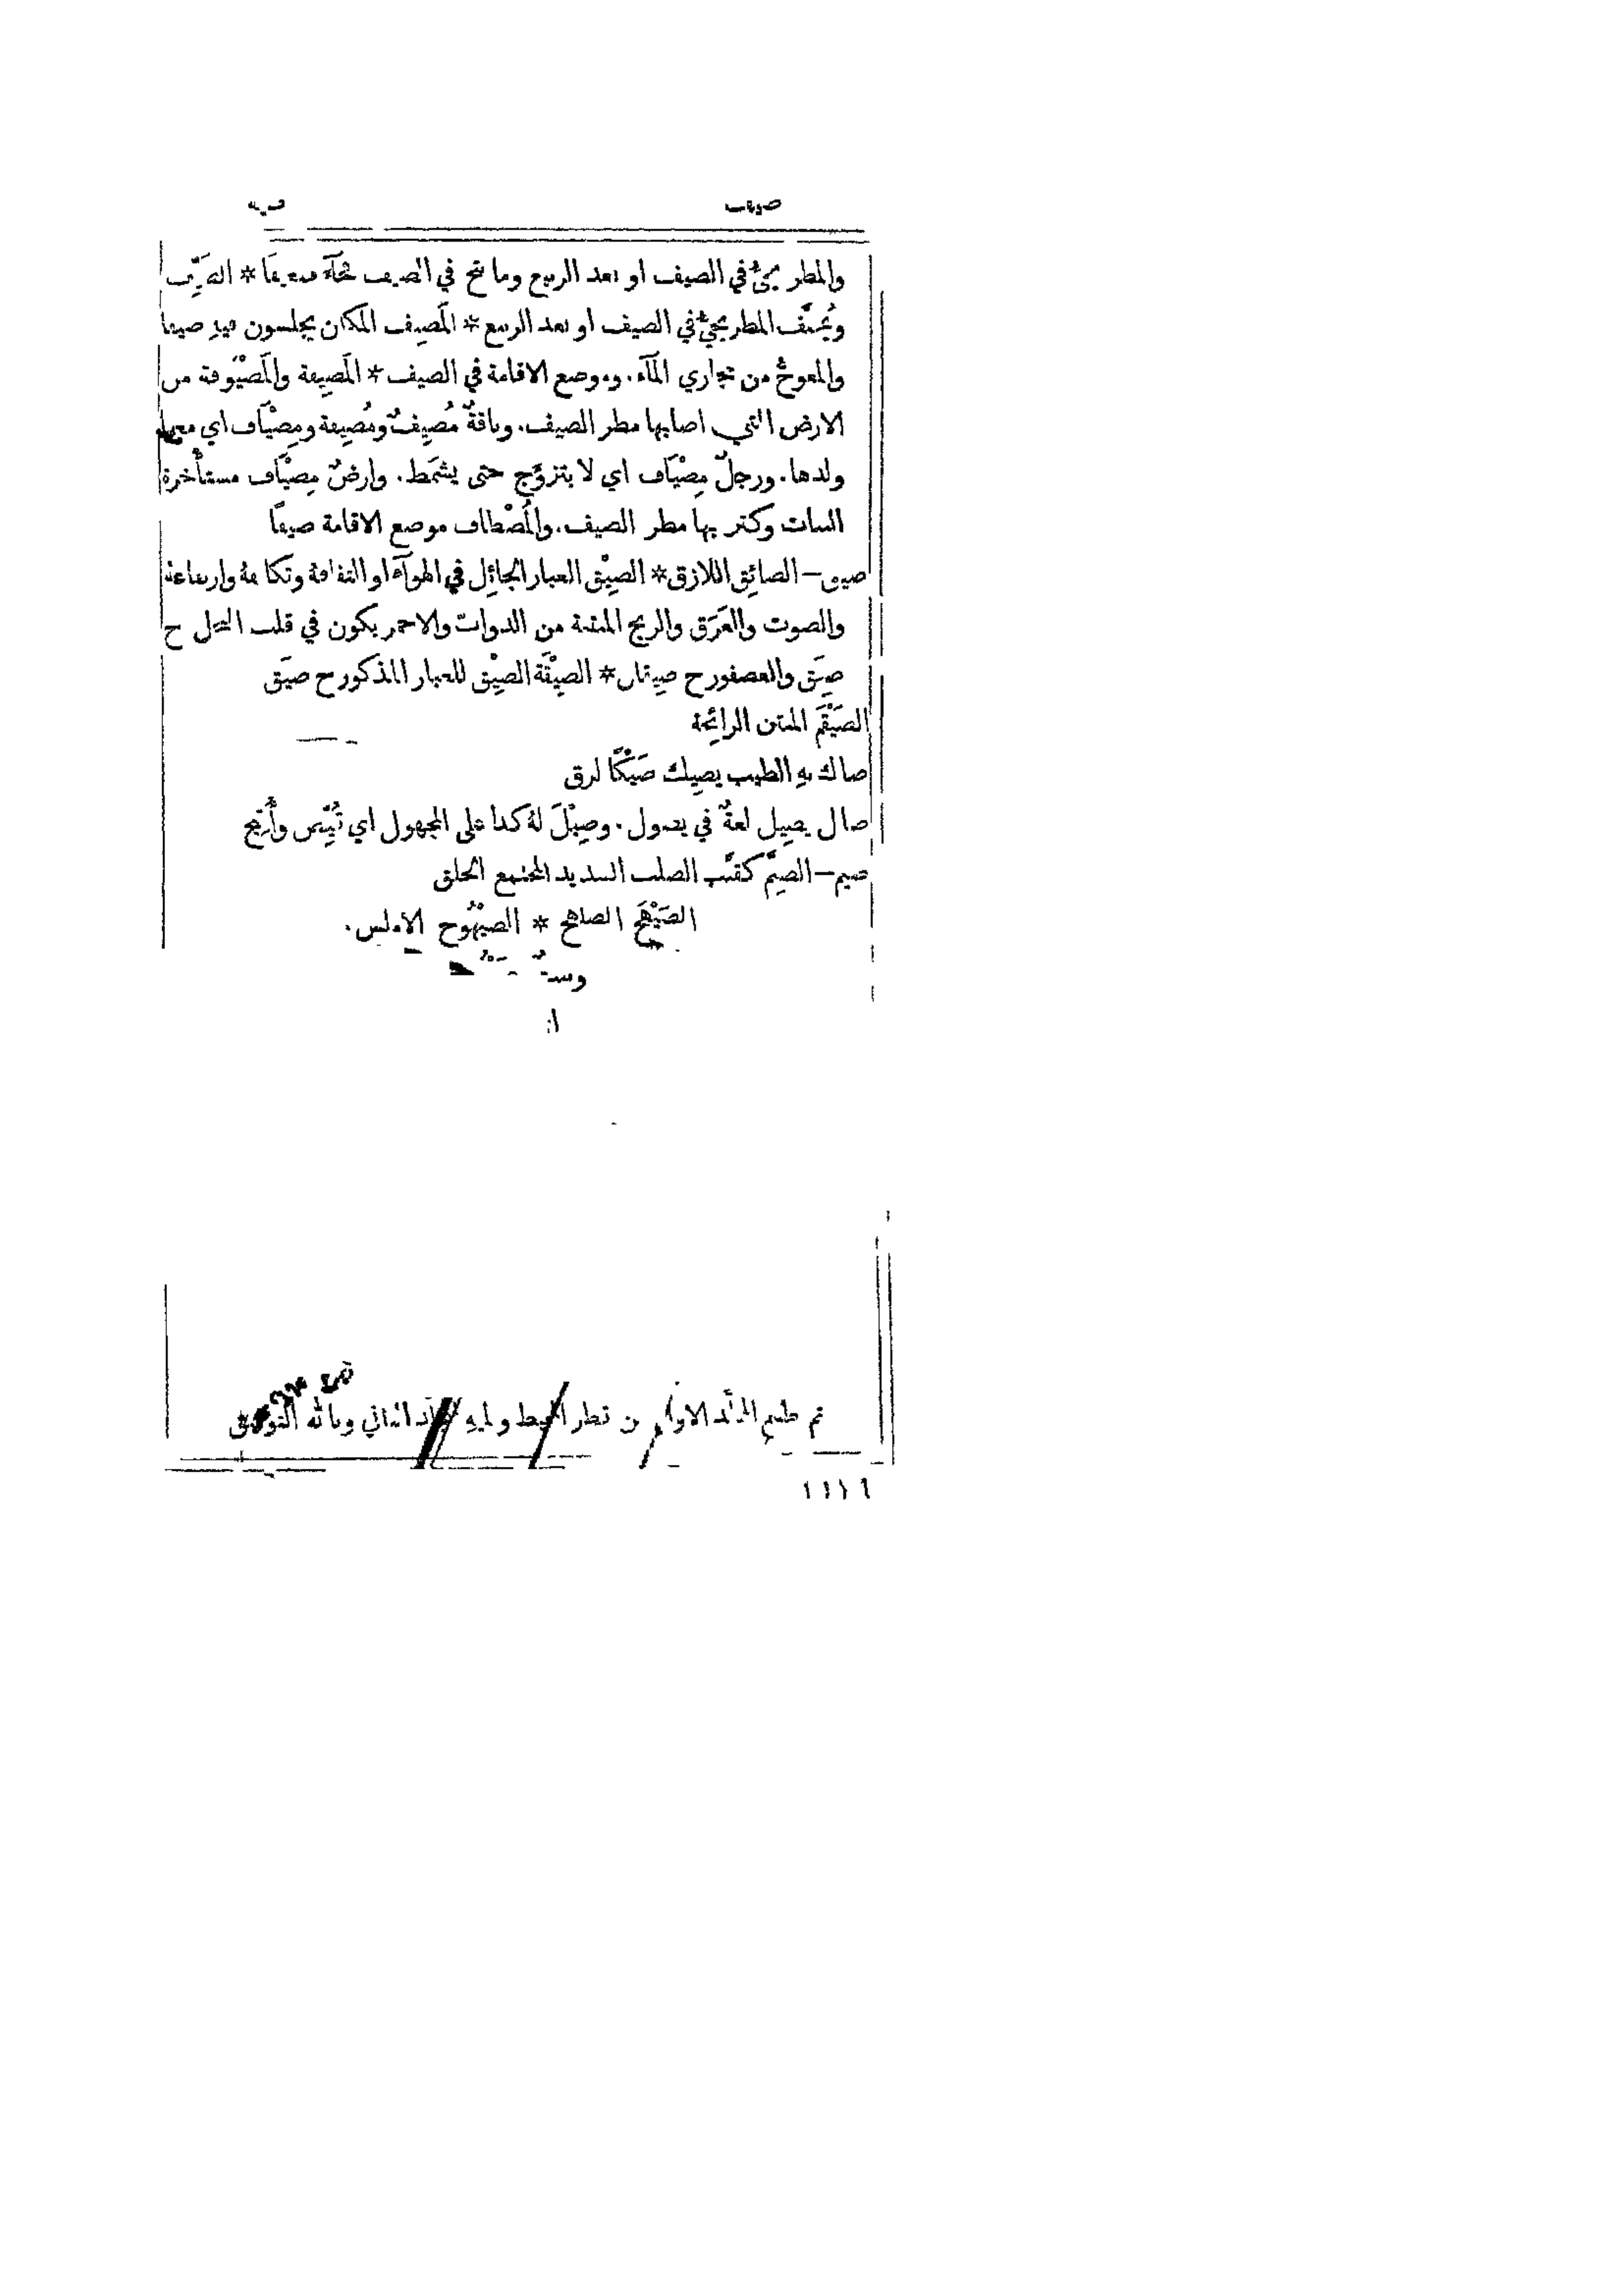 صيف صيه
والمطر يجيءُ في الصيف او بعد الربيع وما نتج في الصيف فجآءَ ضعيفًا * الصَيِّف
ويُخفَّف المطر يجيءُ في الصيف او بعد الربيع * المَصِيف المكان يجلسون فيهِ صيفًا
والمعوجُّ من مجاري المآءِ. وموضع الاقامة في الصيف * المَصِيفة والمَصْيُوفة من
الارض التي اصابها مطر الصيف. وناقةٌ مُصِيفٌ ومُصِيفة ومِصْيَاف اي معها
ولدها. ورجلٌ مِصْيَاف اي لا يتزوَّج حتى يشمَط. وارضٌ مِصْيَاف مستأْخرة
النبات وكثر بها مطر الصيف. والمُصْطاف موضع الاقامة صيفًا
صيق – الصائِق اللازق * الصِيْق الغبار الجائِل في الهوآءِ او التفافهُ وتكاثفهُ وارتفاعهُ
والصوت والعَرَق والريح المنتنة من الدوابّ والاحمر يكون في قلب النخل ج
صِيَق والعصفور ج صِيقان * الصِيْقَة الصِيْق للغبار المذكور ج صِيَق
الصَيْقَم المنتن الرائِحة
صاك بهِ الطيب يصِيك صَيْكًا لزق
صال يصِيل لغةٌ في يصول. وصِيْلَ لهُ كذا على المجهول اي قُيِّض وأُتِيح
صيم – الصِيَّم كقنَّب الصلب الشديد المجتمع الخلق
الصَيْهَج الصلهج * الصَيْهُوج الاملس.
تم طبع المجلد الاول من قطر المحيط ويليهِ المجلد الثاني وبالله التوفيق
١١١٦